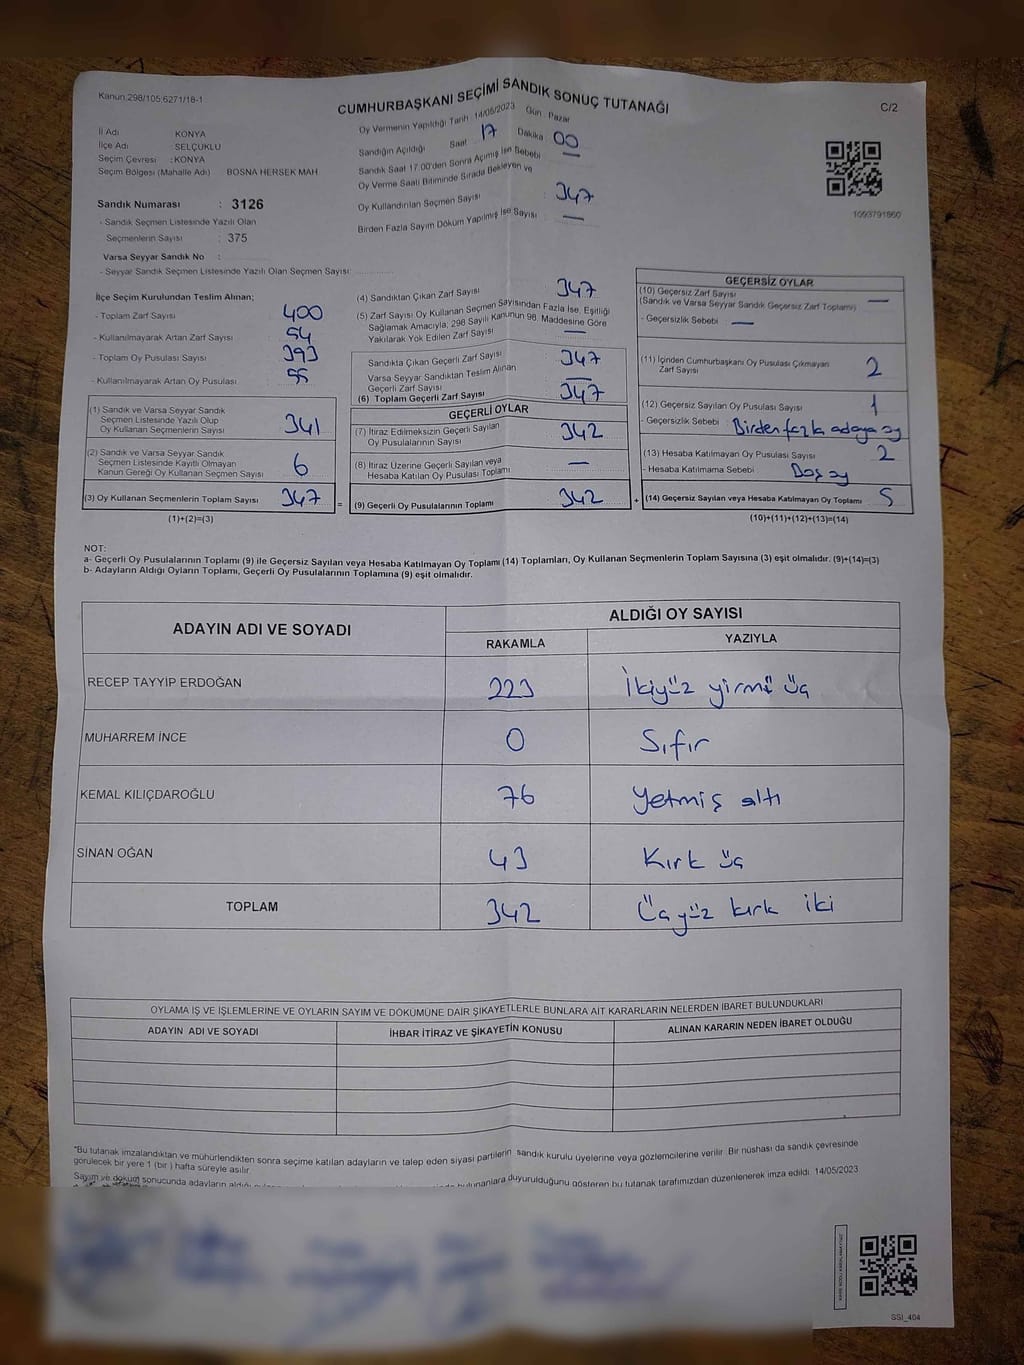 Kanun:298/105;6271/18-1
CUMHURBAŞKANI SEÇİMİ SANDIK SONUÇ TUTANAĞI
C/2
İl Adı KONYA
İlçe Adı : SELÇUKLU
Seçim Çevresi : KONYA
Seçim Bölgesi (Mahalle Adı) BOSNA HERSEK MAH
Sandık Numarası : 3126
- Sandık Seçmen Listesinde Yazılı Olan
Seçmenlerin Sayısı : 375
Varsa Seyyar Sandık No :
- Seyyar Sandık Seçmen Listesinde Yazılı Olan Seçmen Sayısı:
Oy Vermenin Yapıldığı Tarih :14/05/2023 Gün : Pazar
Sandığın Açıldığı Saat 17 Dakika 00
Sandık Saat 17.00'den Sonra Açılmış İse Sebebi —
Oy Verme Saati Bitiminde Sırada Bekleyen ve
Oy Kullandırılan Seçmen Sayısı : 347
Birden Fazla Sayım Döküm Yapılmış İse Sayısı : —
1093791860
İlçe Seçim Kurulundan Teslim Alınan;
- Toplam Zarf Sayısı : 400
- Kullanılmayarak Artan Zarf Sayısı : 54
- Toplam Oy Pusulası Sayısı 393
- Kullanılmayarak Artan Oy Pusulası : 55
(1) Sandık ve Varsa Seyyar Sandık
Seçmen Listesinde Yazılı Olup
Oy Kullanan Seçmenlerin Sayısı 341
(2) Sandık ve Varsa Seyyar Sandık
Seçmen Listesinde Kayıtlı Olmayan
Kanun Gereği Oy Kullanan Seçmen Sayısı 6
(3) Oy Kullanan Seçmenlerin Toplam Sayısı 347 =
(1)+(2)=(3)
(4) Sandıktan Çıkan Zarf Sayısı 347
(5) Zarf Sayısı Oy Kullanan Seçmen Sayısından Fazla İse, Eşitliği
Sağlamak Amacıyla; 298 Sayılı Kanunun 98. Maddesine Göre
Yakılarak Yok Edilen Zarf Sayısı —
Sandıkta Çıkan Geçerli Zarf Sayısı 347
Varsa Seyyar Sandıktan Teslim Alınan
Geçerli Zarf Sayısı —
(6) Toplam Geçerli Zarf Sayısı 347
GEÇERLİ OYLAR
(7) İtiraz Edilmeksizin Geçerli Sayılan
Oy Pusulalarının Sayısı 342
(8) İtiraz Üzerine Geçerli Sayılan veya
Hesaba Katılan Oy Pusulası Toplamı —
(9) Geçerli Oy Pusulalarının Toplamı 342 +
GEÇERSİZ OYLAR
(10) Geçersiz Zarf Sayısı
(Sandık ve Varsa Seyyar Sandık Geçersiz Zarf Toplamı) —
- Geçersizlik Sebebi : —
(11) İçinden Cumhurbaşkanı Oy Pusulası Çıkmayan
Zarf Sayısı 2
(12) Geçersiz Sayılan Oy Pusulası Sayısı 1
- Geçersizlik Sebebi : Birden fazla adaya oy
(13) Hesaba Katılmayan Oy Pusulası Sayısı 2
- Hesaba Katılmama Sebebi : Boş oy
(14) Geçersiz Sayılan veya Hesaba Katılmayan Oy Toplamı 5
(10)+(11)+(12)+(13)=(14)
NOT:
a- Geçerli Oy Pusulalarının Toplamı (9) ile Geçersiz Sayılan veya Hesaba Katılmayan Oy Toplamı (14) Toplamları, Oy Kullanan Seçmenlerin Toplam Sayısına (3) eşit olmalıdır. (9)+(14)=(3)
b- Adayların Aldığı Oyların Toplamı, Geçerli Oy Pusulalarının Toplamına (9) eşit olmalıdır.
ADAYIN ADI VE SOYADI ALDIĞI OY SAYISI
RAKAMLA YAZIYLA
RECEP TAYYIP ERDOĞAN 223 İkiyüz yirmi üç
MUHARREM İNCE 0 Sıfır
KEMAL KILIÇDAROĞLU 76 Yetmiş altı
SİNAN OĞAN 43 Kırk üç
TOPLAM 342 Üçyüz kırk iki
OYLAMA İŞ VE İŞLEMLERİNE VE OYLARIN SAYIM VE DÖKÜMÜNE DAİR ŞİKAYETLERLE BUNLARA AİT KARARLARIN NELERDEN İBARET BULUNDUKLARI
ADAYIN ADI VE SOYADI İHBAR İTİRAZ VE ŞİKAYETİN KONUSU ALINAN KARARIN NEDEN İBARET OLDUĞU
*Bu tutanak imzalandıktan ve mühürlendikten sonra seçime katılan adayların ve talep eden siyasi partilerin sandık kurulu üyelerine veya gözlemcilerine verilir. Bir nüshası da sandık çevresinde
görülecek bir yere 1 (bir) hafta süreyle asılır.
Sayım ve döküm sonucunda adayların aldığı bulunanlara duyurulduğunu gösteren bu tutanak tarafımızdan düzenlenerek imza edildi. 14/05/2023
SSI_404